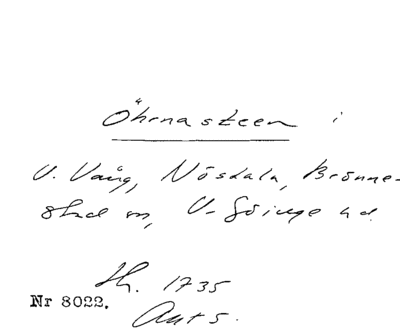 Öhrnasteen i
V. Vång, Nösdala, Brönne-
stad sn, V. Göinge hd.
Th. 1735
Nr 8022.
Ant s.